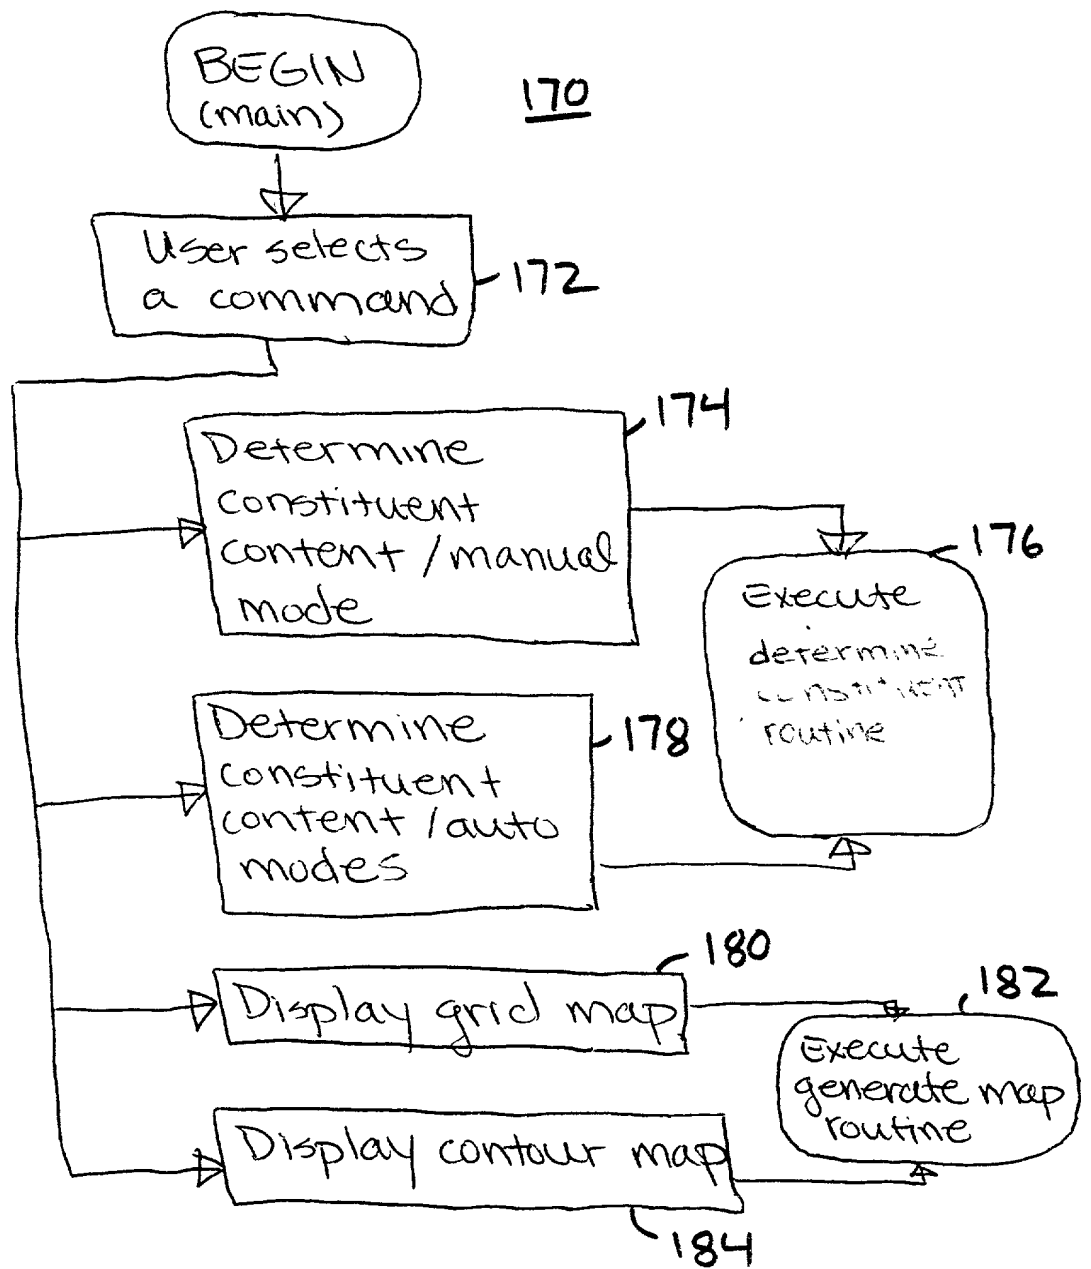 BEGIN
(main)
170
User selects
a command
172
174
Determine
constituent
content/manual
mode
176
Execute
determine
constituent
routine
178
Determine
constituent
content/auto
modes
180
Display grid map
182
Execute
generate map
routine
Display contour map
184